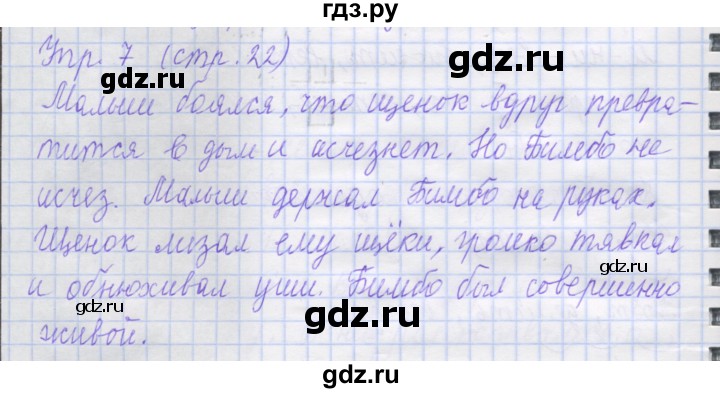 гдз.ру
Упр. 7 (стр. 22)
Малыш боялся, что щенок вдруг превра-
тится в дым и исчезнет. Но Бимбо не
исчез. Малыш держал Бимбо на руках.
Щенок лизал ему щёки, громко тявкал
и обнюхивал уши. Бимбо был совершенно
живой.
gdz.ru
gdz.ru
gdz.ru
gdz.ru
gdz.ru
gdz.ru
gdz.ru